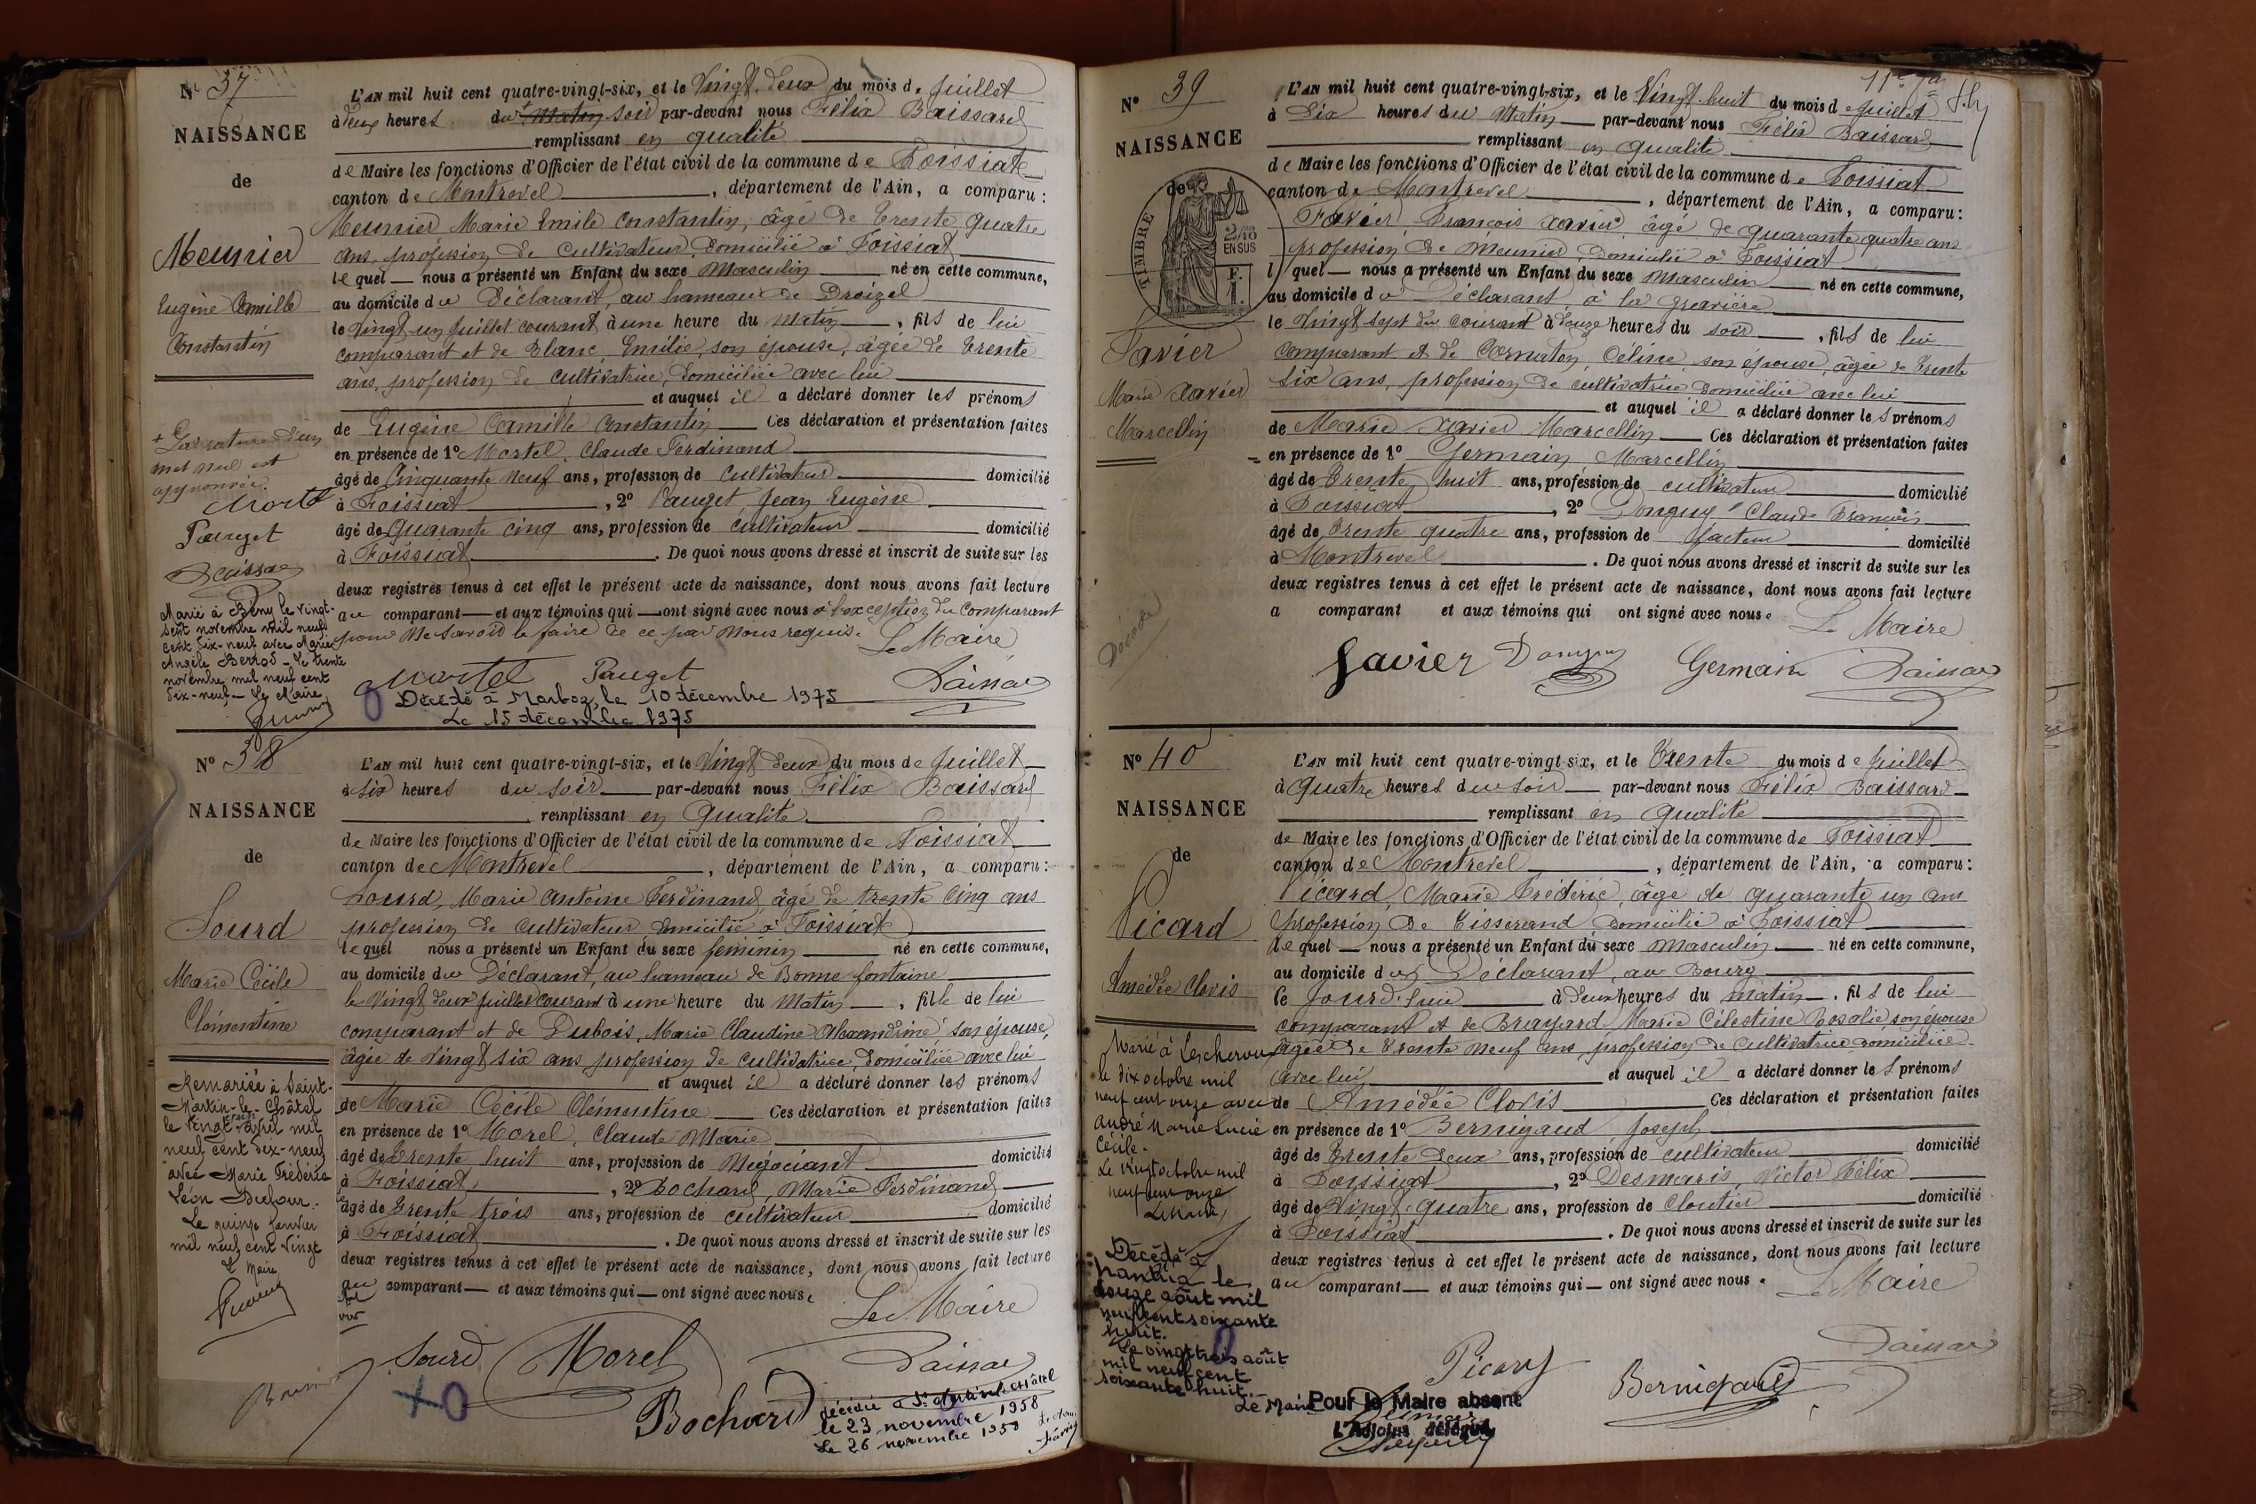 N° 37
NAISSANCE
de
Meunier
Eugène Camille
Constantin
+ La rature d'un
mot nul est
approuvée.
Pauget
Marié à Bény le vingt-
sept novembre mil neuf
cent dix-neuf avec Marie
Angèle Berrod - Le trente
novembre mil neuf cent
dix-neuf - Le Maire
L'AN mil huit cent quatre-vingt-six, et le Vingt deux du mois de Juillet
à deux heures du + Matin soir par-devant nous Félix Baissard
remplissant en qualité
de Maire les fonctions d'Officier de l'état civil de la commune de Foissiat
canton de Montrevel, département de l'Ain, a comparu :
Meunier Marie Emile Constantin, âgé de Trente quatre
ans, profession de cultivateur domicilié à Foissiat
lequel nous a présenté un Enfant du sexe Masculin né en cette commune,
au domicile du Déclarant, au hameau de Droizel
le Vingt-un Juillet courant à une heure du Matin, fils de lui
comparant et de Blanc, Emilie, son épouse, âgée de Trente
ans, profession de cultivatrice, domiciliée avec lui
et auquel il a déclaré donner les prénoms
de Eugène Camille Constantin Ces déclaration et présentation faites
en présence de 1° Mortel, Claude Ferdinand
âgé de Cinquante neuf ans, profession de cultivateur domicilié
à Foissiat, 2° Pauget, Jean Eugène
âgé de Quarante cinq ans, profession de cultivateur domicilié
à Foissiat. De quoi nous avons dressé et inscrit de suite sur les
deux registres tenus à cet effet le présent acte de naissance, dont nous avons fait lecture
au comparant et aux témoins qui ont signé avec nous à l'exception du Comparant
pour ne savoir le faire de ce par nous requis. Le Maire
Mortel Pauget
Décédé à Marboz, le 10 décembre 1975
Le 15 décembre 1975
N° 38
NAISSANCE
de
Sourd
Marie Cécile
Clémentine
Remariée à Saint-
Martin-le-Châtel
le vingt-avril mil
neuf cent dix-neuf
avec Marie Frédéric
Léon Dufour.
Le quinze Janvier
mil neuf cent vingt
Le Maire
L'AN mil huit cent quatre-vingt-six, et le Vingt deux du mois de Juillet
à six heures du soir par-devant nous Félix Baissard
remplissant en Qualité
de Maire les fonctions d'Officier de l'état civil de la commune de Foissiat
canton de Montrevel, département de l'Ain, a comparu :
Sourd, Marie Antoine Ferdinand, âgé de trente cinq ans
profession de cultivateur domicilié à Foissiat
lequel nous a présenté un Enfant du sexe féminin né en cette commune,
au domicile du Déclarant, au hameau de Bonne fontaine
le Vingt deux Juillet courant à une heure du Matin, fille de lui
comparant et de Dubois, Marie Claudine Alexandrine son épouse,
âgée de Vingt six ans profession de cultivatrice, domiciliée avec lui
et auquel il a déclaré donner les prénoms
de Marie Cécile Clémentine Ces déclaration et présentation faites
en présence de 1° Morel, Claude Marie
âgé de Trente huit ans, profession de Négociant domicilié
à Foissiat, 2° Bochard, Marie Ferdinand
âgé de Trente trois ans, profession de cultivateur domicilié
à Foissiat. De quoi nous avons dressé et inscrit de suite sur les
deux registres tenus à cet effet le présent acte de naissance, dont nous avons fait lecture
au comparant et aux témoins qui ont signé avec nous.
Le Maire
Sourd Morel
Bochard
décédée à St Martin le Châtel
le 23 novembre 1958
Le 26 novembre 1958
N° 39
NAISSANCE
de
TIMBRE
2/10
EN SUS
Favier
Marie Xavier
Marcellin
Décédé
L'AN mil huit cent quatre-vingt-six, et le Vingt huit du mois de Juillet
à Six heures du Matin par-devant nous Félix Baissard
remplissant en qualité
de Maire les fonctions d'Officier de l'état civil de la commune de Foissiat
canton de Montrevel, département de l'Ain, a comparu :
Favier, François Xavier, âgé de quarante quatre ans
profession de Meunier, domicilié à Foissiat
lequel nous a présenté un Enfant du sexe Masculin né en cette commune,
au domicile du Déclarant, à la gravière
le Vingt sept du courant à douze heures du soir, fils de lui
comparant et de Cornaton, Céline, son épouse, âgée de Trente
six ans, profession de cultivatrice domiciliée avec lui
et auquel il a déclaré donner les prénoms
de Marie Xavier Marcellin Ces déclaration et présentation faites
en présence de 1° Germain Marcellin
âgé de Trente huit ans, profession de cultivateur domicilié
à Foissiat, 2° Donguy Claude François
âgé de Trente quatre ans, profession de facteur domicilié
à Montrevel. De quoi nous avons dressé et inscrit de suite sur les
deux registres tenus à cet effet le présent acte de naissance, dont nous avons fait lecture
a comparant et aux témoins qui ont signé avec nous.
Le Maire
Favier Donguy Germain
N° 40
NAISSANCE
de
Picard
Amédée Clovis
Marié à Lescheroux
le dix octobre mil
neuf cent onze avec
André Marie Lucie
Cécile.
Le vingt octobre mil
neuf cent onze
Le Maire,
Décédé à
Nantua le
douze août mil
neuf cent soixante
huit.
Le vingt trois août
mil neuf cent
soixante huit.
Le Maire
L'AN mil huit cent quatre-vingt-six, et le Trente du mois de Juillet
à Quatre heures du soir par-devant nous Félix Baissard
remplissant en Qualité
de Maire les fonctions d'Officier de l'état civil de la commune de Foissiat
canton de Montrevel, département de l'Ain, a comparu :
Picard, Marie Frédéric, âgé de quarante un ans
profession de Tisserand domicilié à Foissiat
lequel nous a présenté un Enfant du sexe Masculin né en cette commune,
au domicile du Déclarant, au Bourg
le Jourd'hui à deux heures du matin, fils de lui
comparant et de Brayard Marie Célestine Rosalie son épouse
âgée de Trente Neuf ans, profession de cultivatrice domiciliée
avec lui et auquel il a déclaré donner les prénoms
de Amédée Clovis Ces déclaration et présentation faites
en présence de 1° Bernigaud Joseph
âgé de Trente deux ans, profession de cultivateur domicilié
à Foissiat, 2° Desmaris, Victor Félix
âgé de Vingt-quatre ans, profession de cloutier domicilié
à Foissiat. De quoi nous avons dressé et inscrit de suite sur les
deux registres tenus à cet effet le présent acte de naissance, dont nous avons fait lecture
au comparant et aux témoins qui ont signé avec nous.
Le Maire
Picard Bernigaud
Pour le Maire absent
L'Adjoint délégué